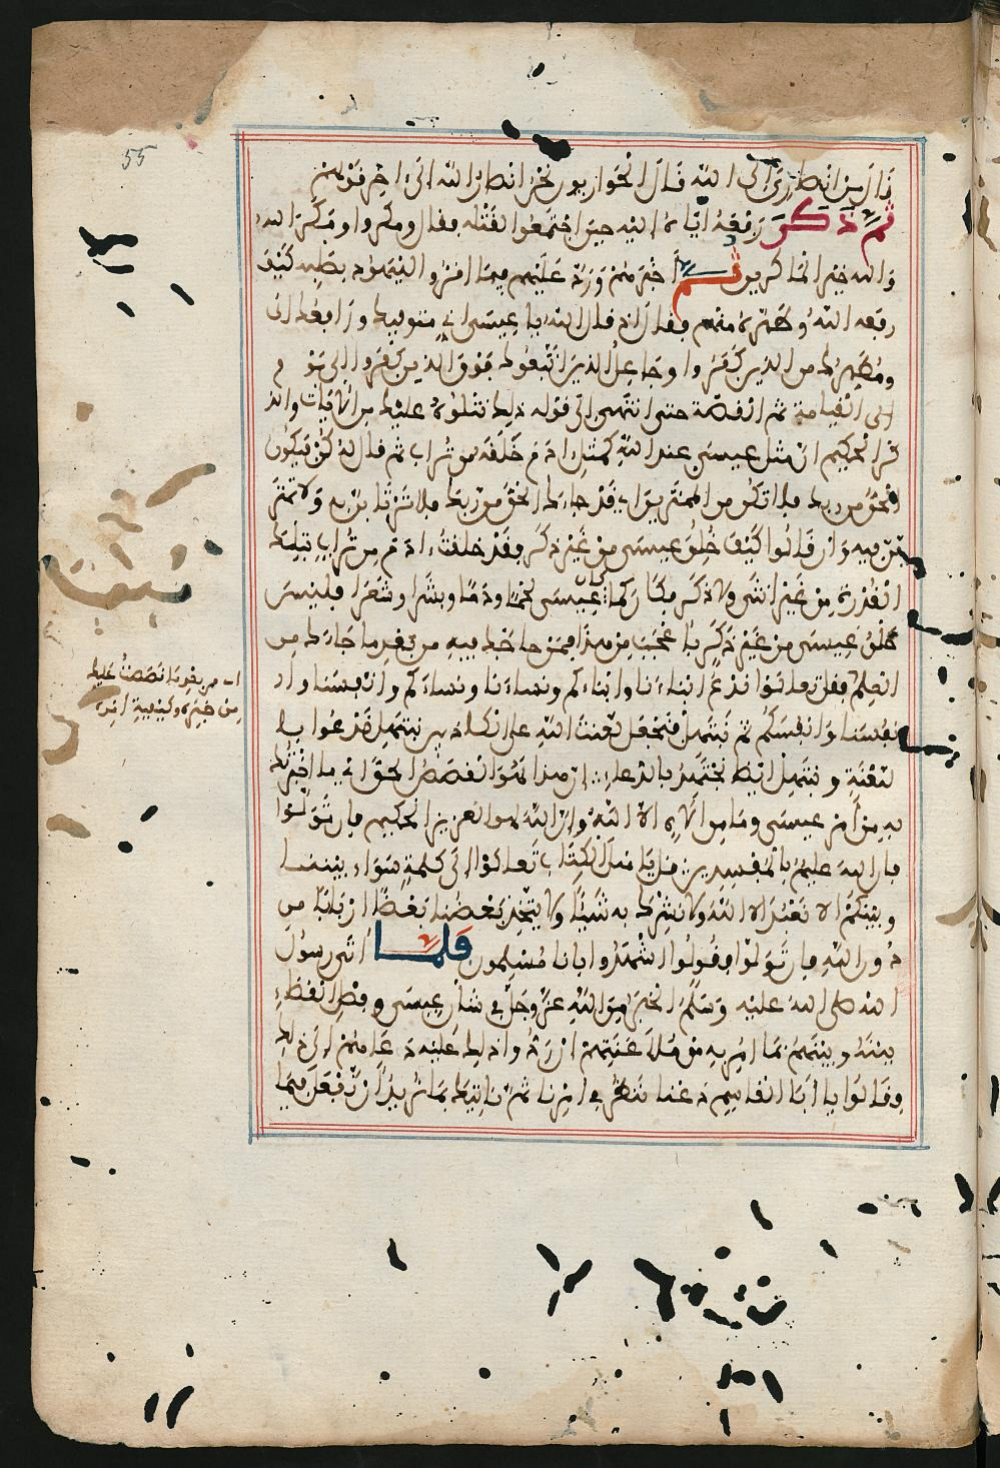 55
قال من أنصاري إلى الله قال الحواريون نحن أنصار الله إلى آخر قولهم
ثم ذكر رفعه إياه إليه حين اجتمعوا لقتله فقال ومكروا ومكر الله
والله خير الماكرين ثم أخبرهم ورد عليهم فيما أقروا لليهود بصلبه كيف
رفعه الله وطهره منهم فقال إذ قال الله يا عيسى إني متوفيك ورافعك إلي
ومطهرك من الذين كفروا وجاعل الذين اتبعوك فوق الذين كفروا إلى يوم
القيامة ثم القصة حتى انتهى إلى قوله ذلك نتلوه عليك من الآيات والذ
كر الحكيم إن مثل عيسى عند الله كمثل آدم خلقه من تراب ثم قال له كن فيكون
الحق من ربك فلا تكن من الممترين أي قد جاءك الحق من ربك فلا تمترين به ولا تمتر
ين فيه وإن قالوا كيف خلق عيسى من غير ذكر فقد خلقت آدم من تراب بتلك
القدرة من غير أنثى ولا ذكر فكان كما كان عيسى لحما ودما وبشرا وشعرا فليس
خلق عيسى من غير ذكر بأعجب من هذا فمن حاجك فيه من بعد ما جاءك من
العلم فقل تعالوا ندع أبناءنا وأبناءكم ونساءنا ونساءكم وأنفسنا وأ
نفسكم ثم نبتهل فنجعل لعنت الله على الكاذبين
به من أمر عيسى وما من إله إلا الله وإن الله لهو العزيز الحكيم فإن تولوا
فإن الله عليم بالمفسدين قل يا أهل الكتاب تعالوا إلى كلمة سواء بيننا
وبينكم ألا نعبد إلا الله ولا نشرك به شيئا ولا يتخذ بعضنا بعضا أربابا من
دون الله فإن تولوا فقولوا اشهدوا بأنا مسلمون فلما أتى رسول
الله صلى الله عليه وسلم الخبر من الله عز وجل في شأن عيسى وفصل القضاء
بينه وبينهم بما أمر به من ملاعنتهم إن ردوا ذلك عليه دعاهم إلى ذلك
وقالوا يا أبا القاسم دعنا ننظر في أمرنا ثم نأتيك بما نريد أن نفعل فيما
أي من بعد ما قصصت عليك
من خبره وكيفية أمره